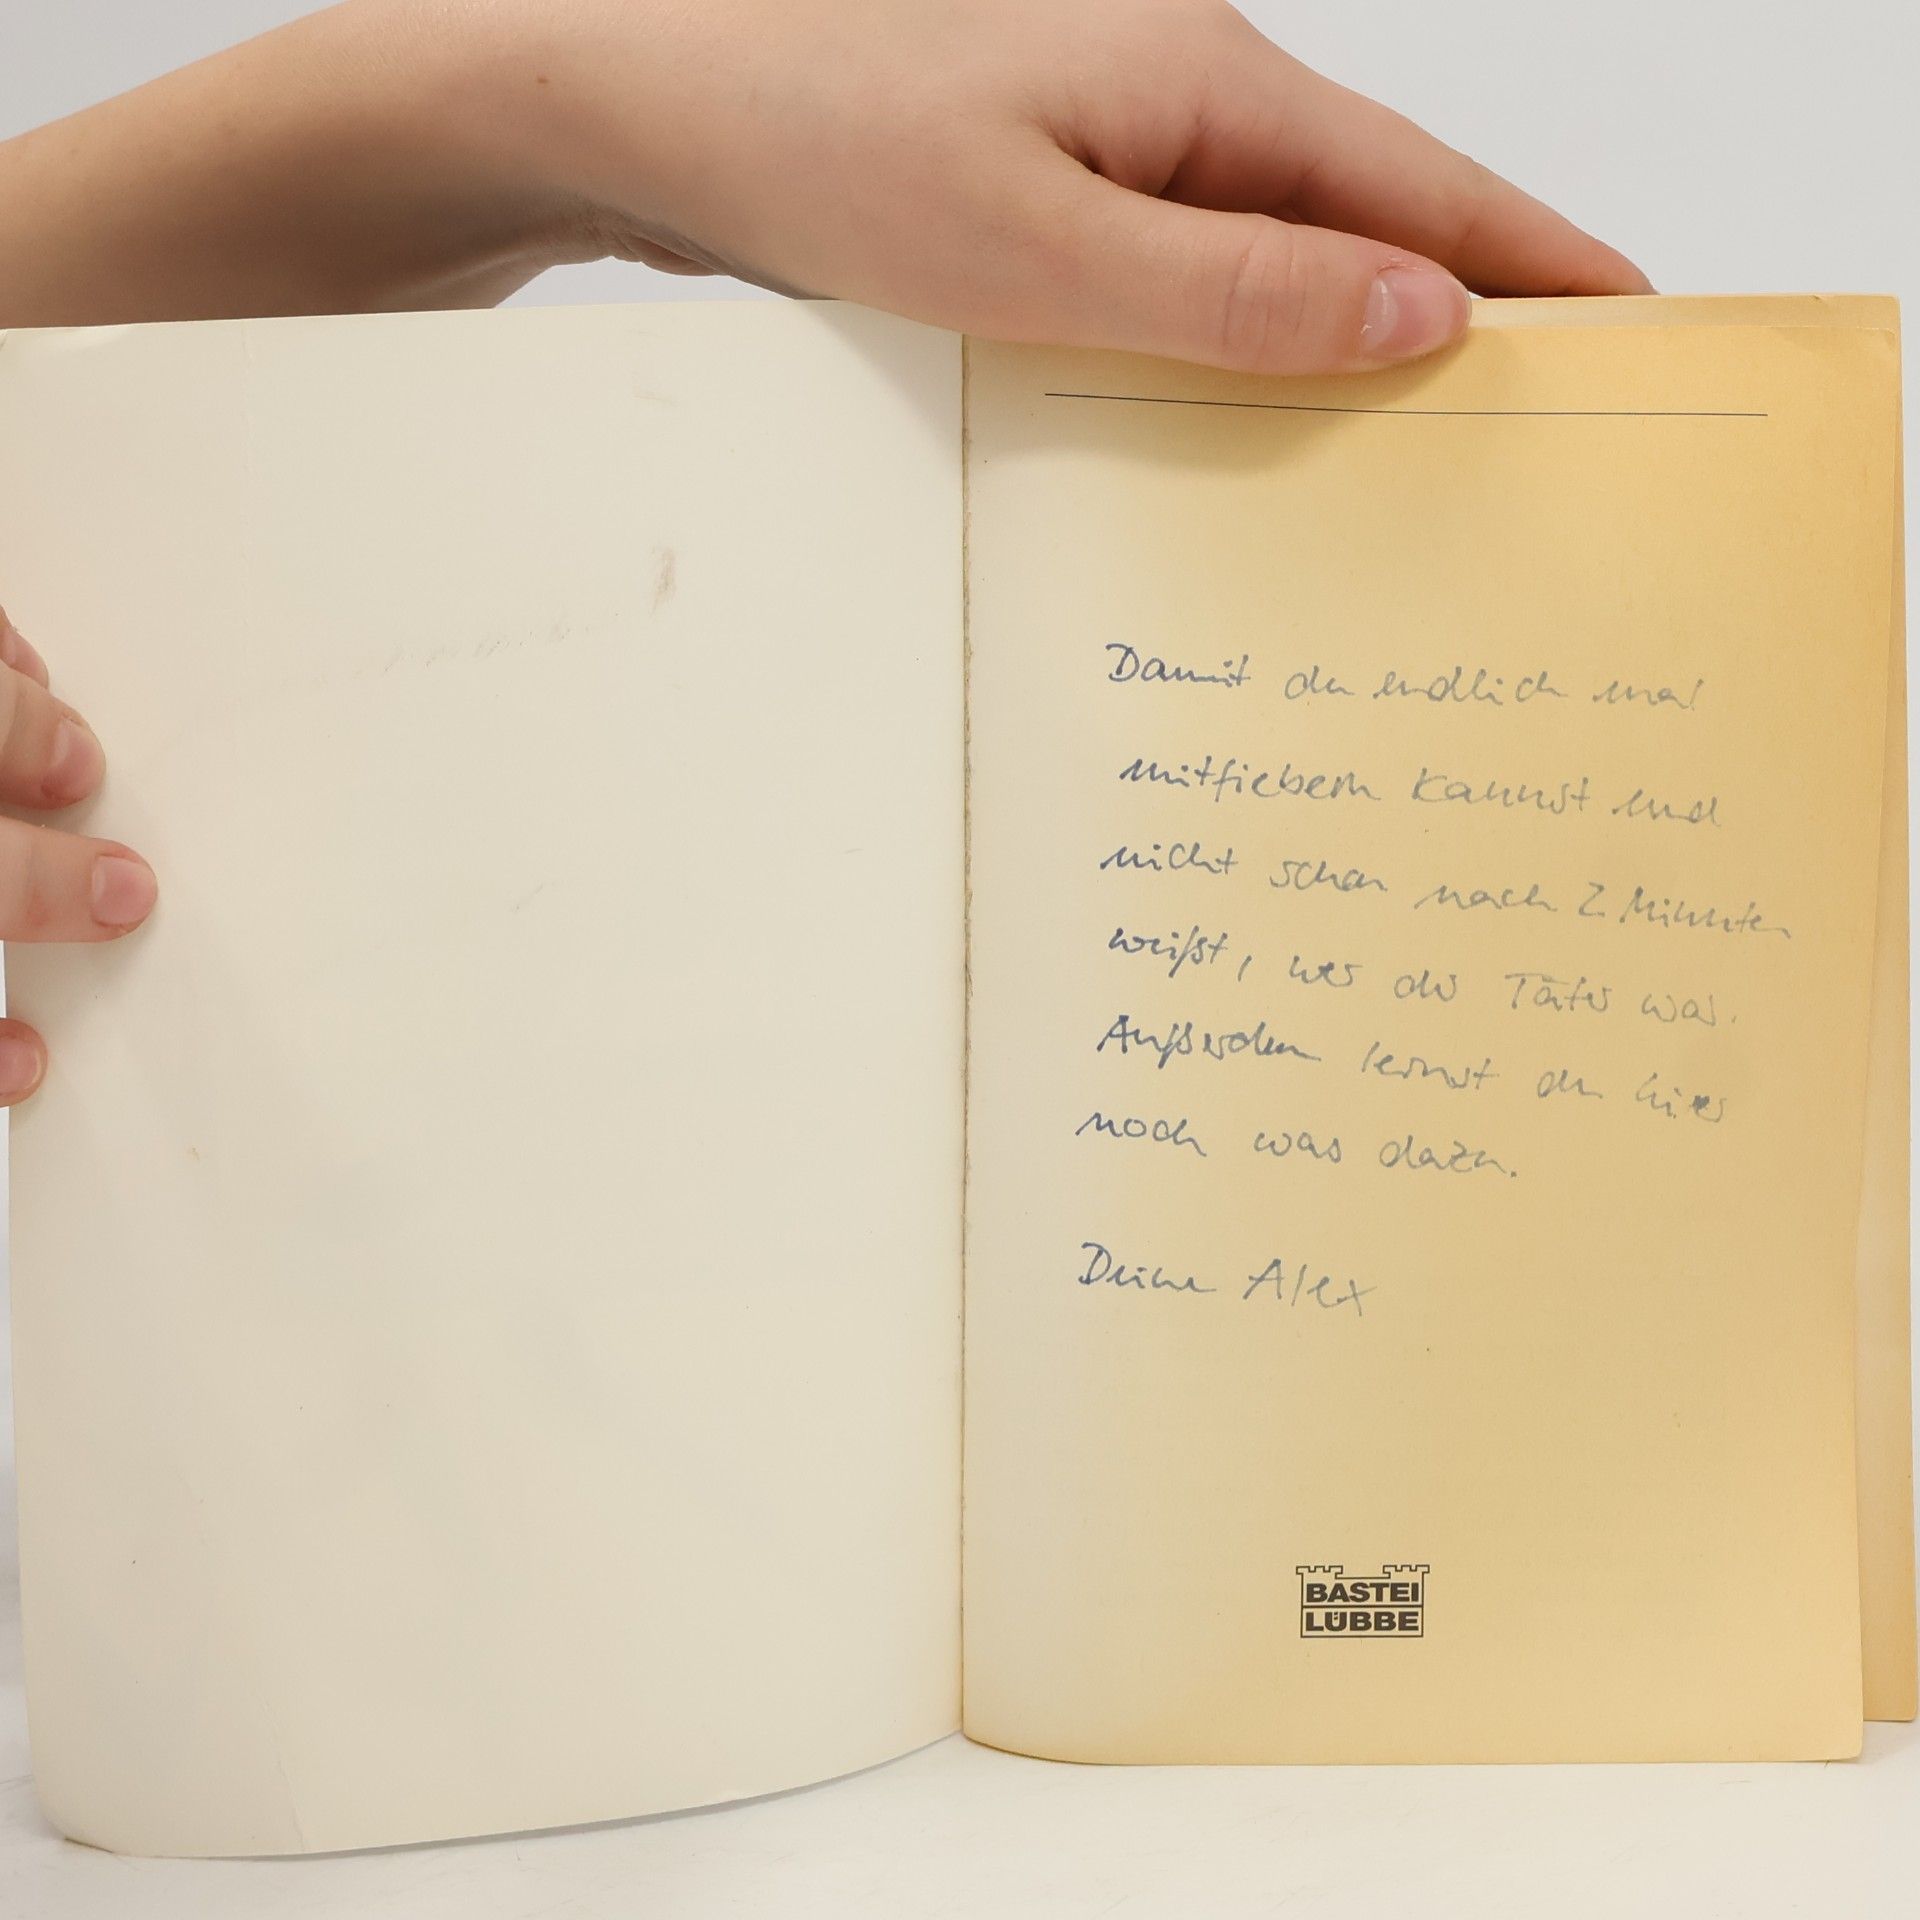 Damit du endlich mal
mitfiebern kannst und
nicht schon nach 2 Minuten
weißt, wer der Täter war.
Außerdem lernst du hier
noch was dazu.
Deine Alex
BASTEI
LÜBBE